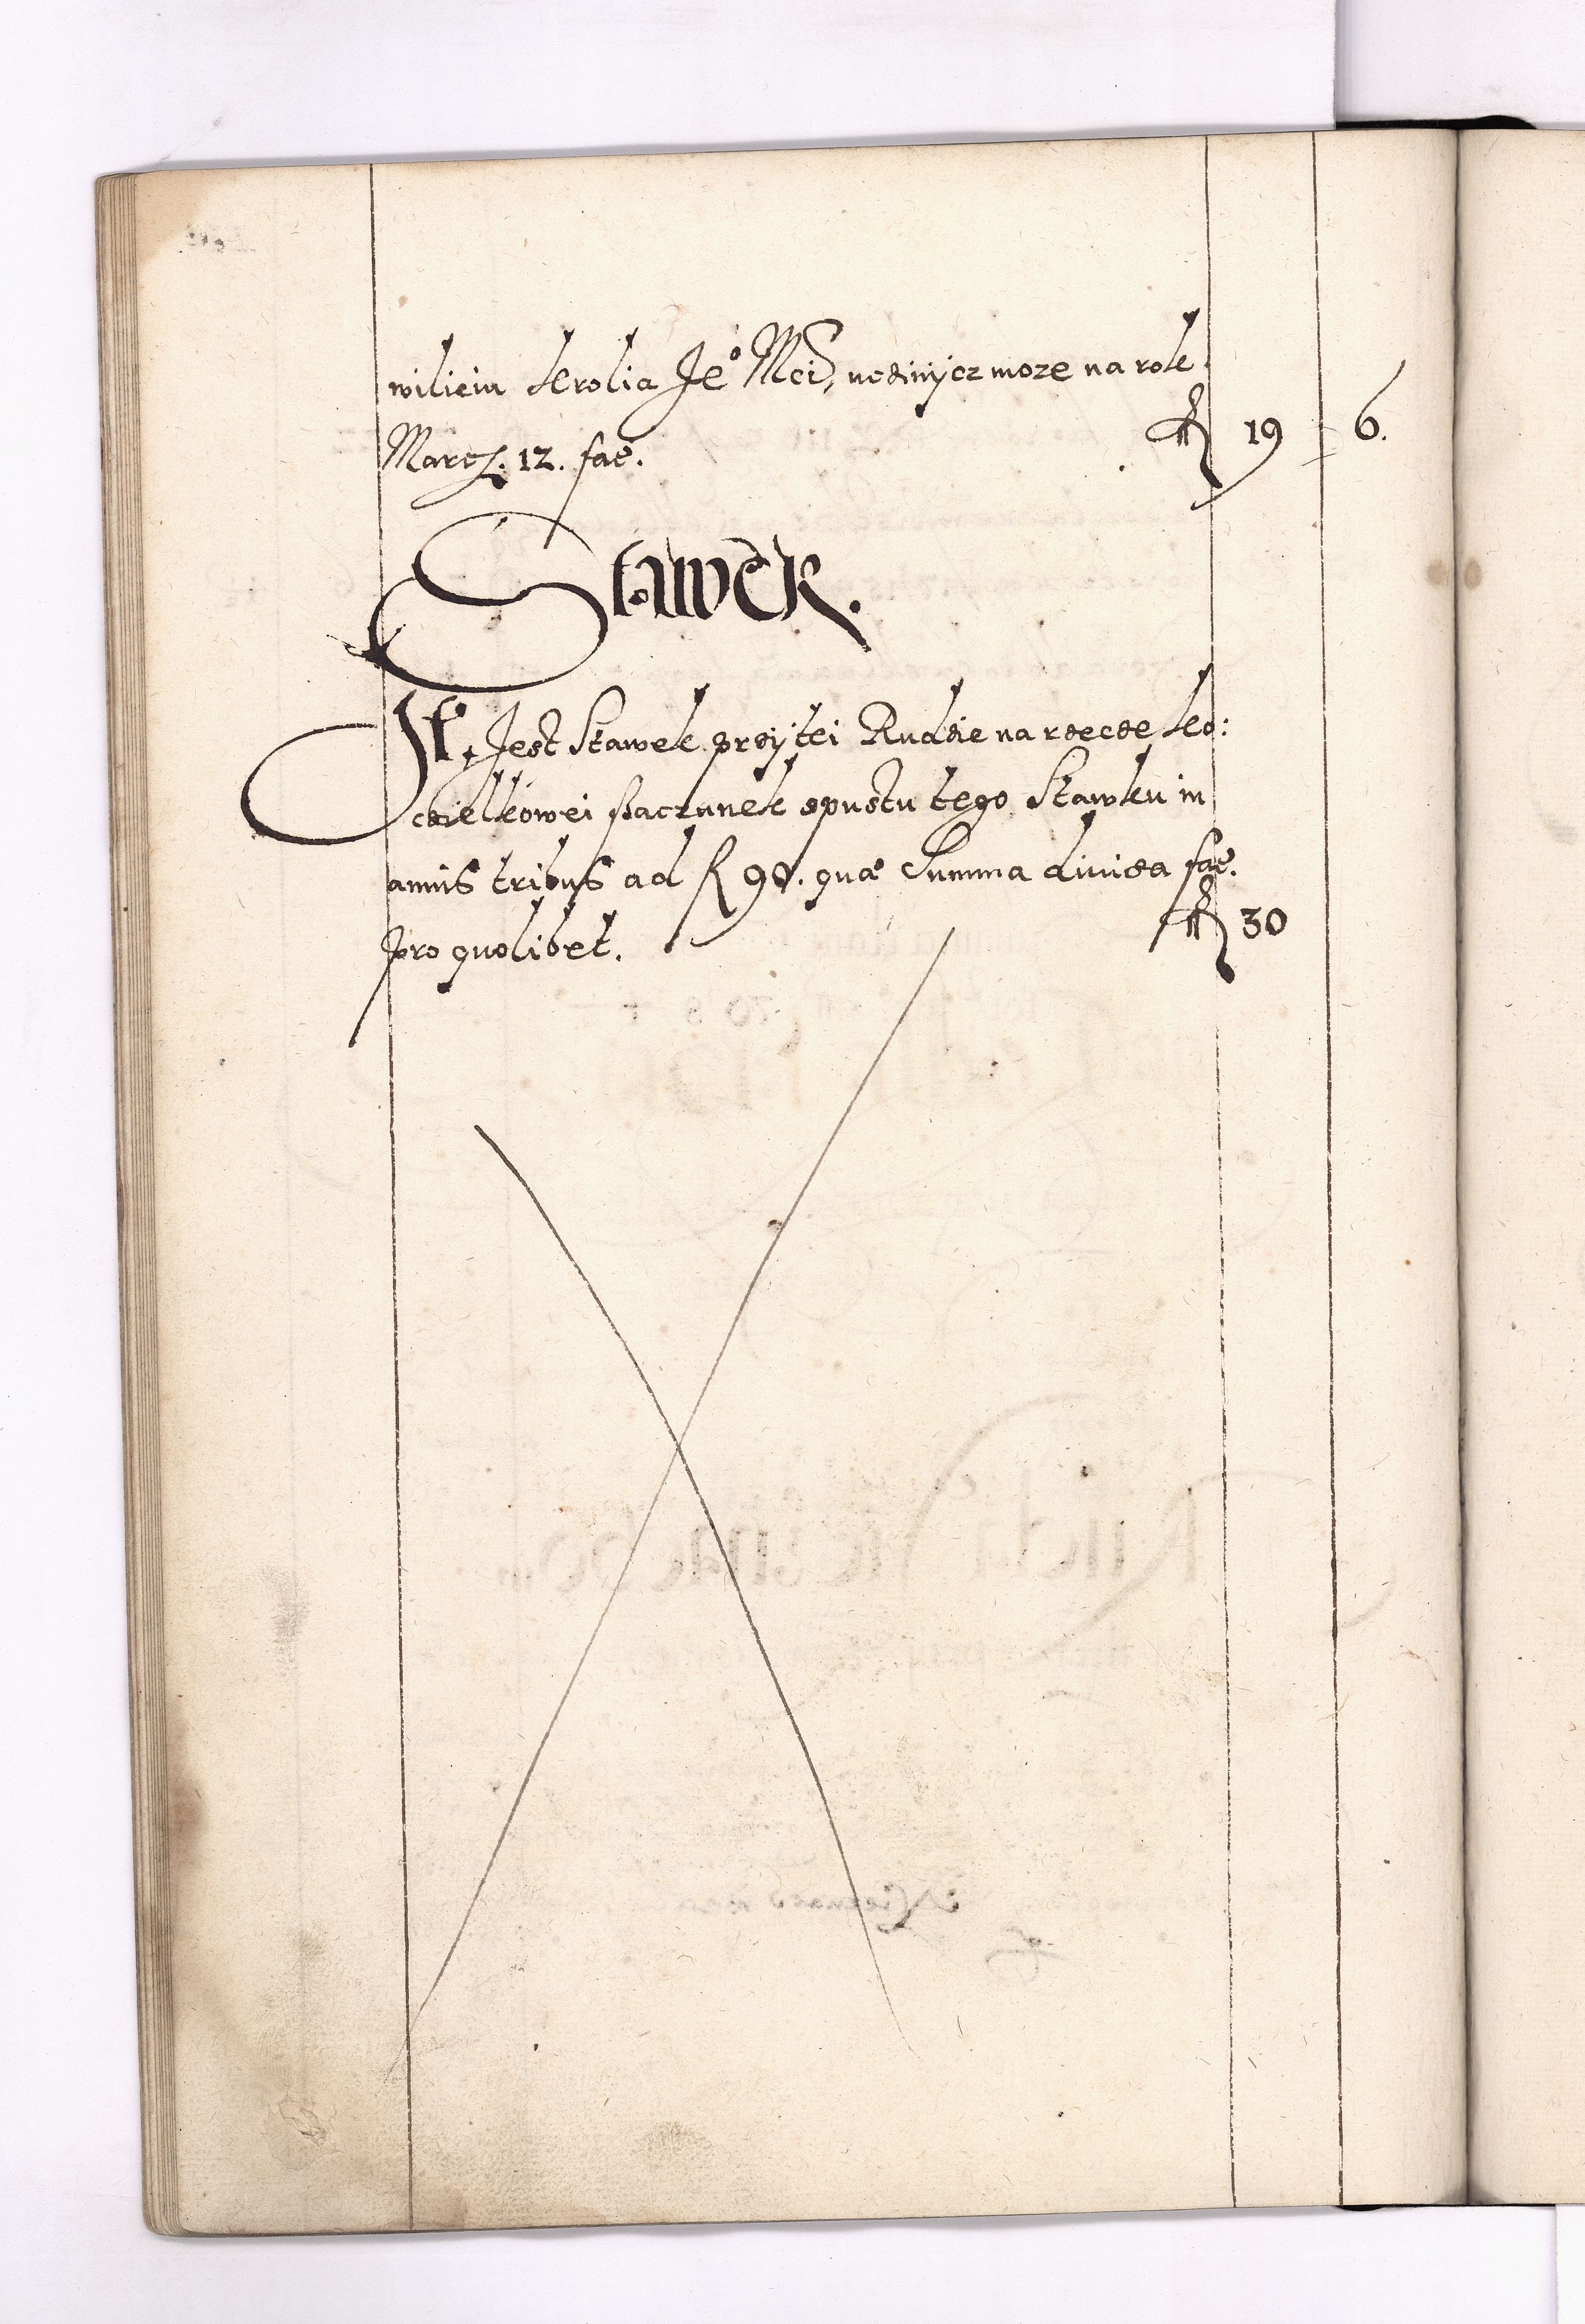 wilieiu krolia Jeº Mci, ucziniicz moze na rok
Marcz. 12. fac. fl 19 6.
Stawek.
It. Jest Stawek przÿ tei Rudzie na rzecze ko:
czielkowei szaczunek spustu tego Stawku in
annis tribus ad fl 90. quæ Summa diuisa fac.
pro quolibet. fl 30